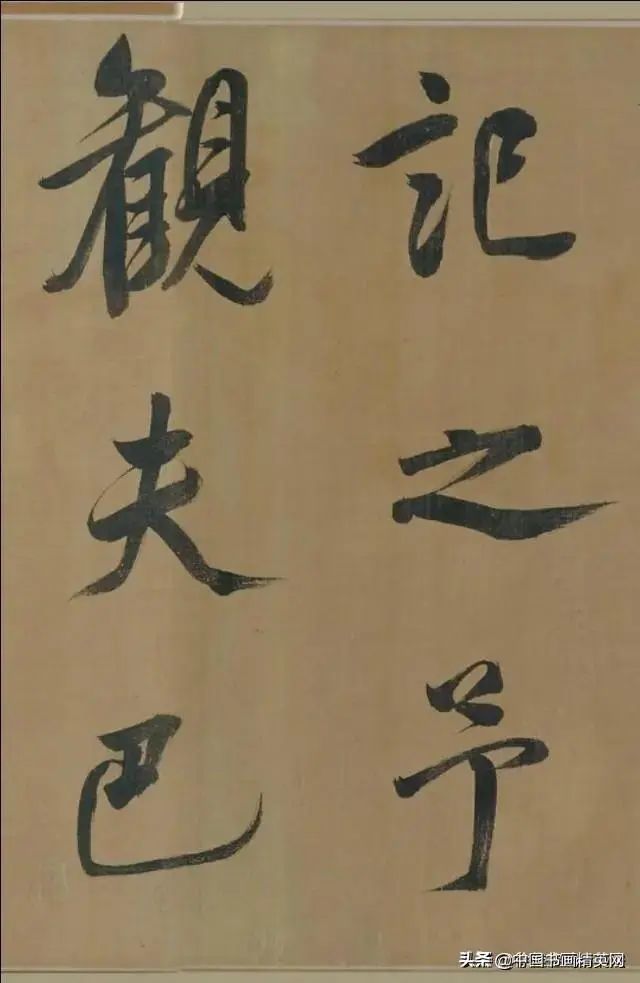 記之予
觀夫巴
头条 @中国书画精英网